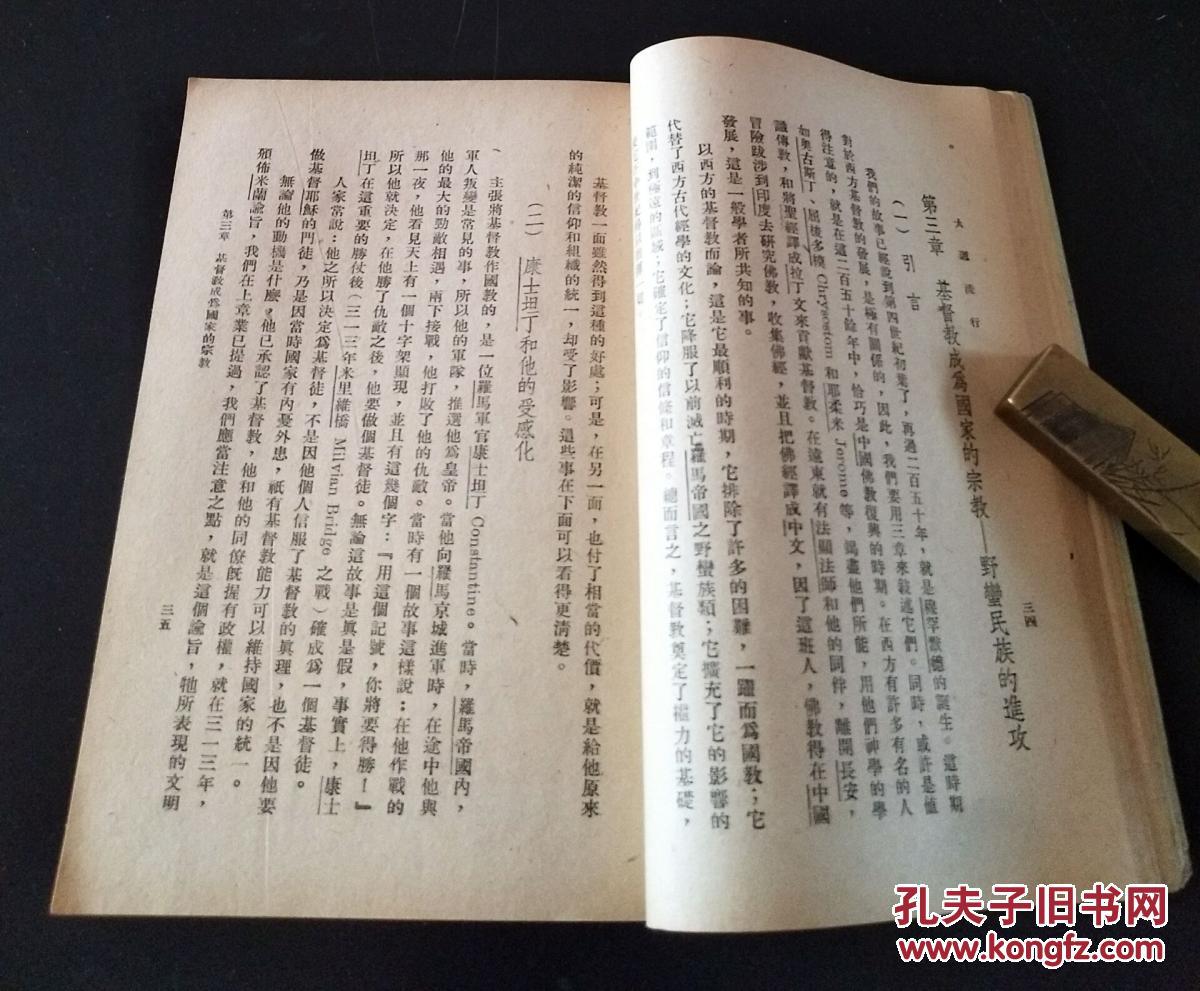 大 道 流 行
三四
第三章 基督敎成爲國家的宗敎——野蠻民族的進攻
(一) 引 言
我們的故事已經說到第四世紀初葉了,再過二百五十年,就是
的誕生。這時期
對於西方基督敎的發展,是極有關係的,因此,我們要用三章來敍述它們。同時,或許是值
得注意的,就是在這二百五十餘年中,恰巧是中國佛敎復興的時期。在西方有許多有名的人
如奧古斯丁、屈梭多模 Chrysostom 和耶柔米 Jerome 等,竭盡他們所能,用他們神學的學
識傳敎,和將聖經譯成拉丁文來貢獻基督敎。在遠東就有法顯法師和他的同伴,離開長安,
冒險跋涉到印度去研究佛敎,收集佛經,並且把佛經譯成中文,因了這班人,佛敎得在中國
發展,這是一般學者所共知的事。
以西方的基督敎而論,這是它最順利的時期,它排除了許多的困難,一躍而爲國敎;它
代替了西方古代經學的文化;它降服了以前滅亡羅馬帝國之野蠻族類;它擴充了它的影響的
範圍,到極遠的區域;它確定了信仰的信條和章程。總而言之,基督敎奠定了權力的基礎,
基督敎一面雖然得到這種的好處;可是,在另一面,也付了相當的代價,就是給他原來
的純潔的信仰和組織的統一,却受了影響。這些事在下面可以看得更清楚。
(二) 康士坦丁和他的受感化
主張將基督敎作國敎的,是一位羅馬軍官康士坦丁 Constantine。當時,羅馬帝國內,
軍人叛變是常見的事,所以他的軍隊,推選他為皇帝。當他向羅馬京城進軍時,在途中他與
他的最大的勁敵相遇,兩下接戰,他打敗了他的仇敵。當時有一個故事這樣說:在他作戰的
那一夜,他看見天上有一個十字架顯現,並且有這幾個字:『用這個記號,你將要得勝!』
所以他就決定,在他勝了仇敵之後,他要做個基督徒。無論這故事是眞是假,事實上,康士
坦丁在這重要的勝仗後(三一三年米里維橋 Milvian Bridge 之戰)確成爲一個基督徒。
人家常說:他之所以決定爲基督徒,不是因他個人信服了基督敎的眞理,也不是因他要
做基督耶穌的門徒,乃是因當時國家有內憂外患,祇有基督敎能力可以維持國家的統一。
無論他的動機是什麼,他已承認了基督敎,他和他的同僚旣握有政權,就在三一三年,
頒佈米蘭諭旨,我們在上章業已提過,我們應當注意之點,就是這個諭旨,牠所表現的文明
第三章 基督敎成爲國家的宗敎
三五
孔夫子旧书网
www.kongfz.com